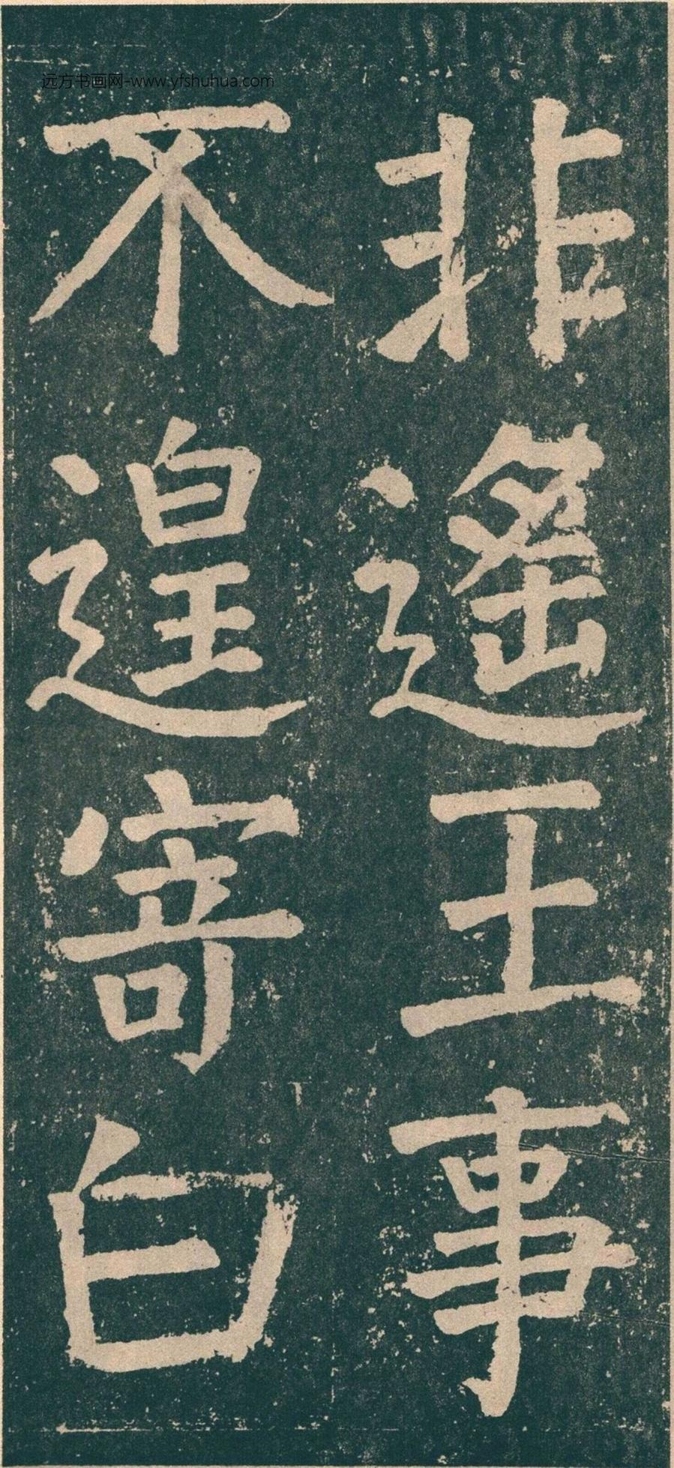 远方书画网-www.yfshuhua.com
非遥王事
不遑寄白